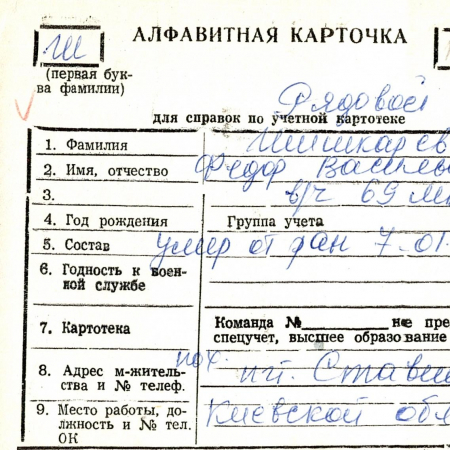 Ш АЛФАВИТНАЯ КАРТОЧКА
(первая бук-
ва фамилии)
Рядовой
для справок по учетной картотеке
1. Фамилия Шишкарев
2. Имя, отчество Федор Василье
3. в/ч 69
4. Год рождения Группа учета
5. Состав умер от ран 7.01.
6. Годность к воен-
ной службе
7. Картотека Команда № не пре
спецучет, высшее образование
пох.
8. Адрес м-житель-
ства и № телеф. пгт. Стави
9. Место работы, до- Киевской обл
лжность и № тел.
ОК